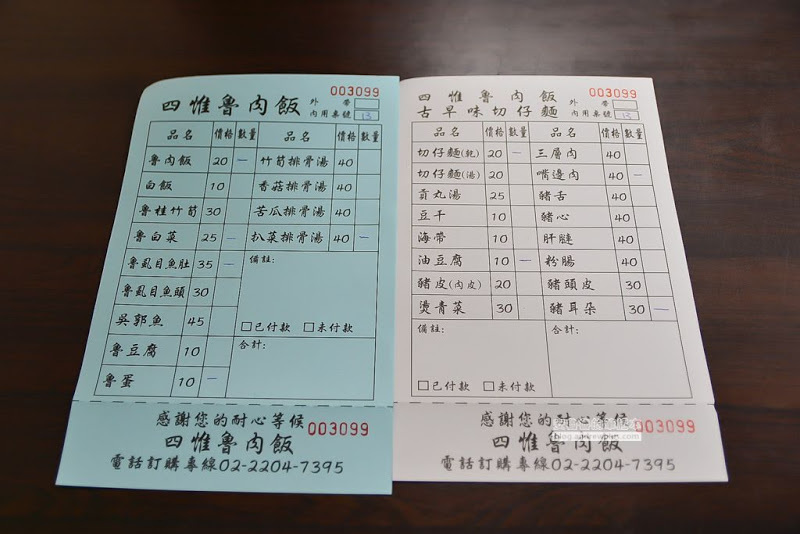 003099
四惟魯肉飯 外帶
內用桌號 13
品名 價格 數量 品名 價格 數量
魯肉飯 20 一 竹筍排骨湯 40
白飯 10 香菇排骨湯 40
魯桂竹筍 30 苦瓜排骨湯 40
魯白菜 25 一 扒菜排骨湯 40 一
魯虱目魚肚 35 一 備註:
魯虱目魚頭 30
吳郭魚 45 □已付款 □未付款
魯豆腐 10 合計:
魯蛋 10 一
感謝您的耐心等候
四惟魯肉飯 003099
電話訂購專線02-2204-7395
003099
四惟魯肉飯 外帶
古早味切仔麵 內用桌號 13
品名 價格 數量 品名 價格 數量
切仔麵(乾) 20 一 三層肉 40
切仔麵(湯) 20 嘴邊肉 40 一
貢丸湯 25 豬舌 40
豆干 10 豬心 40
海帶 10 肝膉 40
油豆腐 10 一 粉腸 40
豬皮(肉皮) 20 豬頭皮 30
燙青菜 30 豬耳朵 30 一
備註: 合計:
□已付款 □未付款
感謝您的耐心等候
四惟魯肉飯 003099
電話訂購專線02-2204-7395